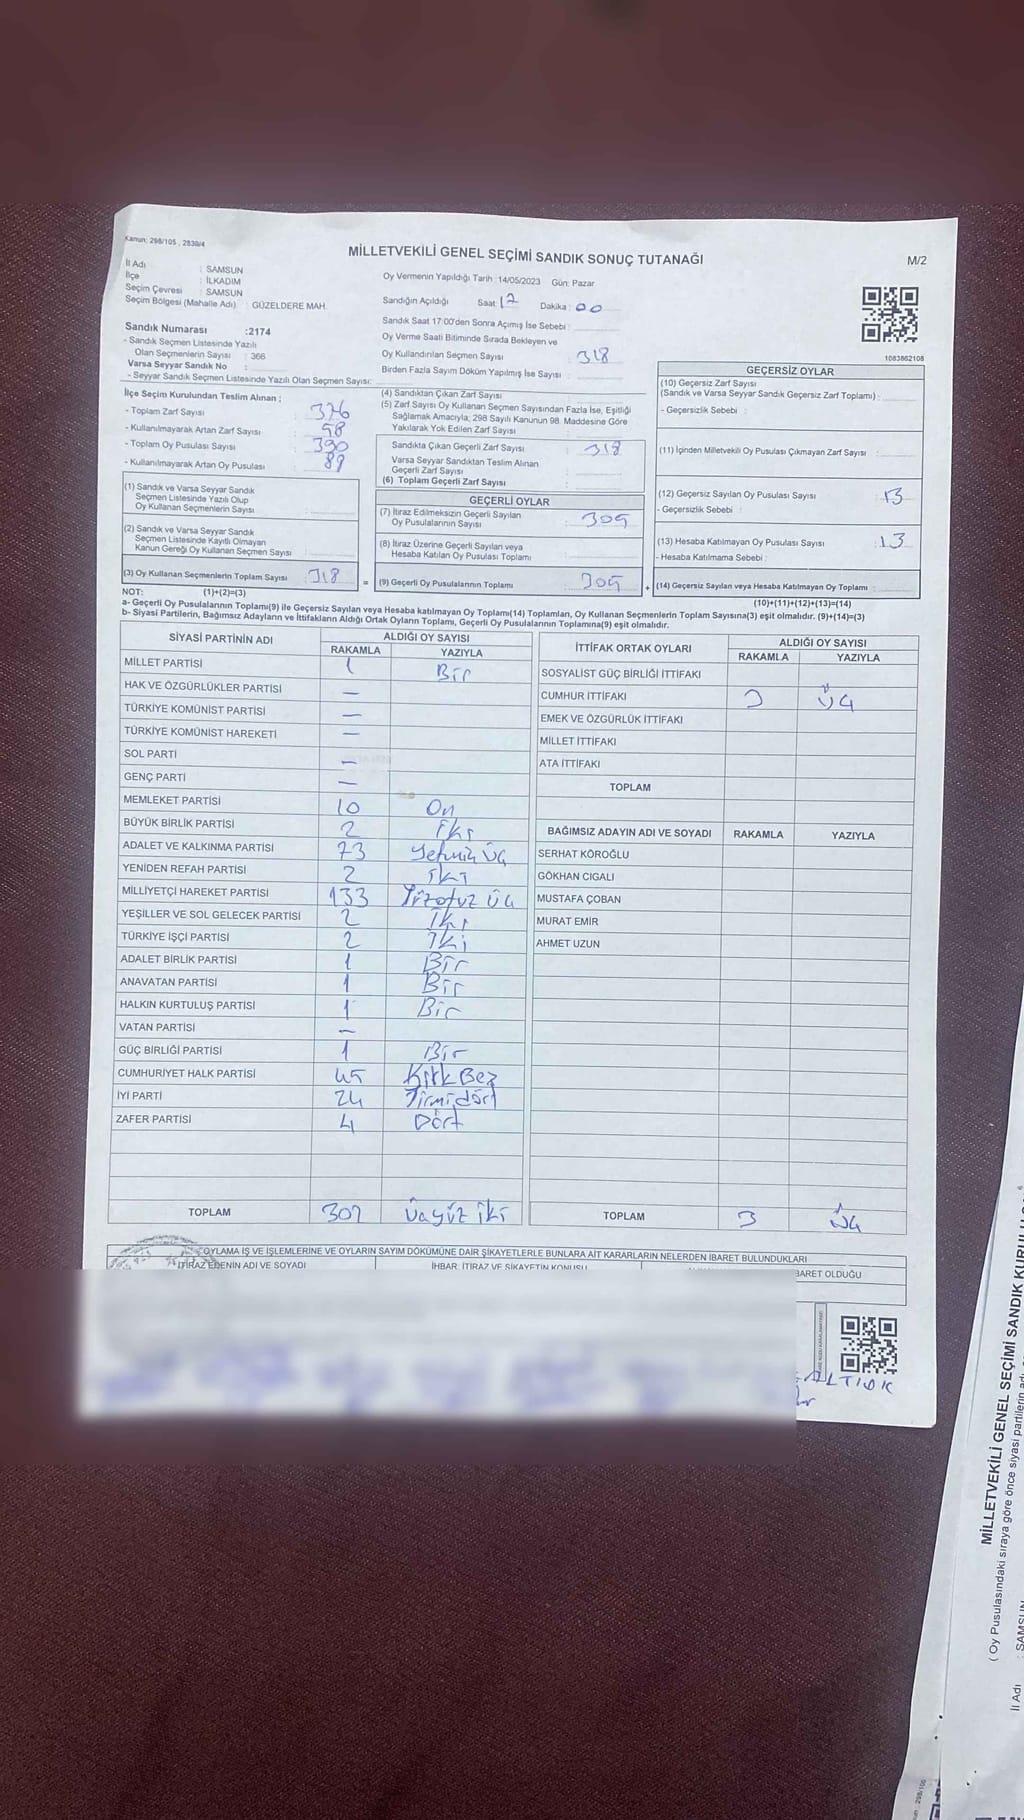 Kanun: 298/105 , 2839/4
MİLLETVEKİLİ GENEL SEÇİMİ SANDIK SONUÇ TUTANAĞI
M/2
İl Adı : SAMSUN
İlçe : İLKADIM
Seçim Çevresi : SAMSUN
Seçim Bölgesi (Mahalle Adı) : GÜZELDERE MAH.
Oy Vermenin Yapıldığı Tarih :14/05/2023 Gün: Pazar
Sandığın Açıldığı Saat 17 Dakika : 00
Sandık Saat 17:00'den Sonra Açımış İse Sebebi :
Oy Verme Saati Bitiminde Sırada Bekleyen ve
Oy Kullandırılan Seçmen Sayısı : 318
Birden Fazla Sayım Döküm Yapılmış İse Sayısı :
1083862108
Sandık Numarası :2174
- Sandık Seçmen Listesinde Yazılı
Olan Seçmenlerin Sayısı : 366
Varsa Seyyar Sandık No :
- Seyyar Sandık Seçmen Listesinde Yazılı Olan Seçmen Sayısı:
İlçe Seçim Kurulundan Teslim Alınan ;
- Toplam Zarf Sayısı : 376
- Kullanılmayarak Artan Zarf Sayısı : 58
- Toplam Oy Pusulası Sayısı : 390
- Kullanılmayarak Artan Oy Pusulası : 89
(1) Sandık ve Varsa Seyyar Sandık
Seçmen Listesinde Yazılı Olup
Oy Kullanan Seçmenlerin Sayısı :
(2) Sandık ve Varsa Seyyar Sandık
Seçmen Listesinde Kayıtlı Olmayan
Kanun Gereği Oy Kullanan Seçmen Sayısı :
(3) Oy Kullanan Seçmenlerin Toplam Sayısı : 318
(4) Sandıktan Çıkan Zarf Sayısı :
(5) Zarf Sayısı Oy Kullanan Seçmen Sayısından Fazla İse, Eşitliği
Sağlamak Amacıyla; 298 Sayılı Kanunun 98. Maddesine Göre
Yakılarak Yok Edilen Zarf Sayısı :
Sandıkta Çıkan Geçerli Zarf Sayısı : 318
Varsa Seyyar Sandıktan Teslim Alınan
Geçerli Zarf Sayısı :
(6) Toplam Geçerli Zarf Sayısı :
GEÇERLİ OYLAR
(7) İtiraz Edilmeksizin Geçerli Sayılan
Oy Pusulalarının Sayısı : 305
(8) İtiraz Üzerine Geçerli Sayılan veya
Hesaba Katılan Oy Pusulası Toplamı :
= (9) Geçerli Oy Pusulalarının Toplamı : 305
GEÇERSİZ OYLAR
(10) Geçersiz Zarf Sayısı
(Sandık ve Varsa Seyyar Sandık Geçersiz Zarf Toplamı) :
- Geçersizlik Sebebi :
(11) İçinden Milletvekili Oy Pusulası Çıkmayan Zarf Sayısı :
(12) Geçersiz Sayılan Oy Pusulası Sayısı : 13
- Geçersizlik Sebebi :
(13) Hesaba Katılmayan Oy Pusulası Sayısı : 13
- Hesaba Katılmama Sebebi :
+ (14) Geçersiz Sayılan veya Hesaba Katılmayan Oy Toplamı :
NOT: (1)+(2)=(3) (10)+(11)+(12)+(13)=(14)
a- Geçerli Oy Pusulalarının Toplamı(9) ile Geçersiz Sayılan veya Hesaba katılmayan Oy Toplamı(14) Toplamları, Oy Kullanan Seçmenlerin Toplam Sayısına(3) eşit olmalıdır. (9)+(14)=(3)
b- Siyasi Partilerin, Bağımsız Adayların ve İttifakların Aldığı Ortak Oyların Toplamı, Geçerli Oy Pusulalarının Toplamına(9) eşit olmalıdır.
SİYASİ PARTİNİN ADI ALDIĞI OY SAYISI
RAKAMLA YAZIYLA
MİLLET PARTİSİ 1 Bir
HAK VE ÖZGÜRLÜKLER PARTİSİ —
TÜRKİYE KOMÜNİST PARTİSİ —
TÜRKİYE KOMÜNİST HAREKETİ —
SOL PARTİ —
GENÇ PARTİ —
MEMLEKET PARTİSİ 10 On
BÜYÜK BİRLİK PARTİSİ 2 İki
ADALET VE KALKINMA PARTİSİ 73 Yetmiş Üç
YENİDEN REFAH PARTİSİ 2 İki
MİLLİYETÇİ HAREKET PARTİSİ 133 Yüzotuz üç
YEŞİLLER VE SOL GELECEK PARTİSİ 2 İki
TÜRKİYE İŞÇİ PARTİSİ 2 İki
ADALET BİRLİK PARTİSİ 1 Bir
ANAVATAN PARTİSİ 1 Bir
HALKIN KURTULUŞ PARTİSİ 1 Bir
VATAN PARTİSİ —
GÜÇ BİRLİĞİ PARTİSİ 1 Bir
CUMHURİYET HALK PARTİSİ 45 Kırk Beş
İYİ PARTİ 24 Yirmi dört
ZAFER PARTİSİ 4 Dört
TOPLAM 302 Üçyüz iki
İTTİFAK ORTAK OYLARI ALDIĞI OY SAYISI
RAKAMLA YAZIYLA
SOSYALİST GÜÇ BİRLİĞİ İTTİFAKI
CUMHUR İTTİFAKI 3 Üç
EMEK VE ÖZGÜRLÜK İTTİFAKI
MİLLET İTTİFAKI
ATA İTTİFAKI
TOPLAM
BAĞIMSIZ ADAYIN ADI VE SOYADI RAKAMLA YAZIYLA
SERHAT KÖROĞLU
GÖKHAN CIGALI
MUSTAFA ÇOBAN
MURAT EMİR
AHMET UZUN
TOPLAM 3 Üç
OYLAMA İŞ VE İŞLEMLERİNE VE OYLARIN SAYIM DÖKÜMÜNE DAİR ŞİKAYETLERLE BUNLARA AİT KARARLARIN NELERDEN İBARET BULUNDUKLARI
İTİRAZ EDENİN ADI VE SOYADI İHBAR, İTİRAZ VE ŞİKAYETİN KONUSU BARET OLDUĞU
MİLLETVEKİLİ GENEL SEÇİMİ SANDIK KURULU
( Oy Pusulasındaki sıraya göre önce siyasi partilerin
İl Adı : SAMSUN